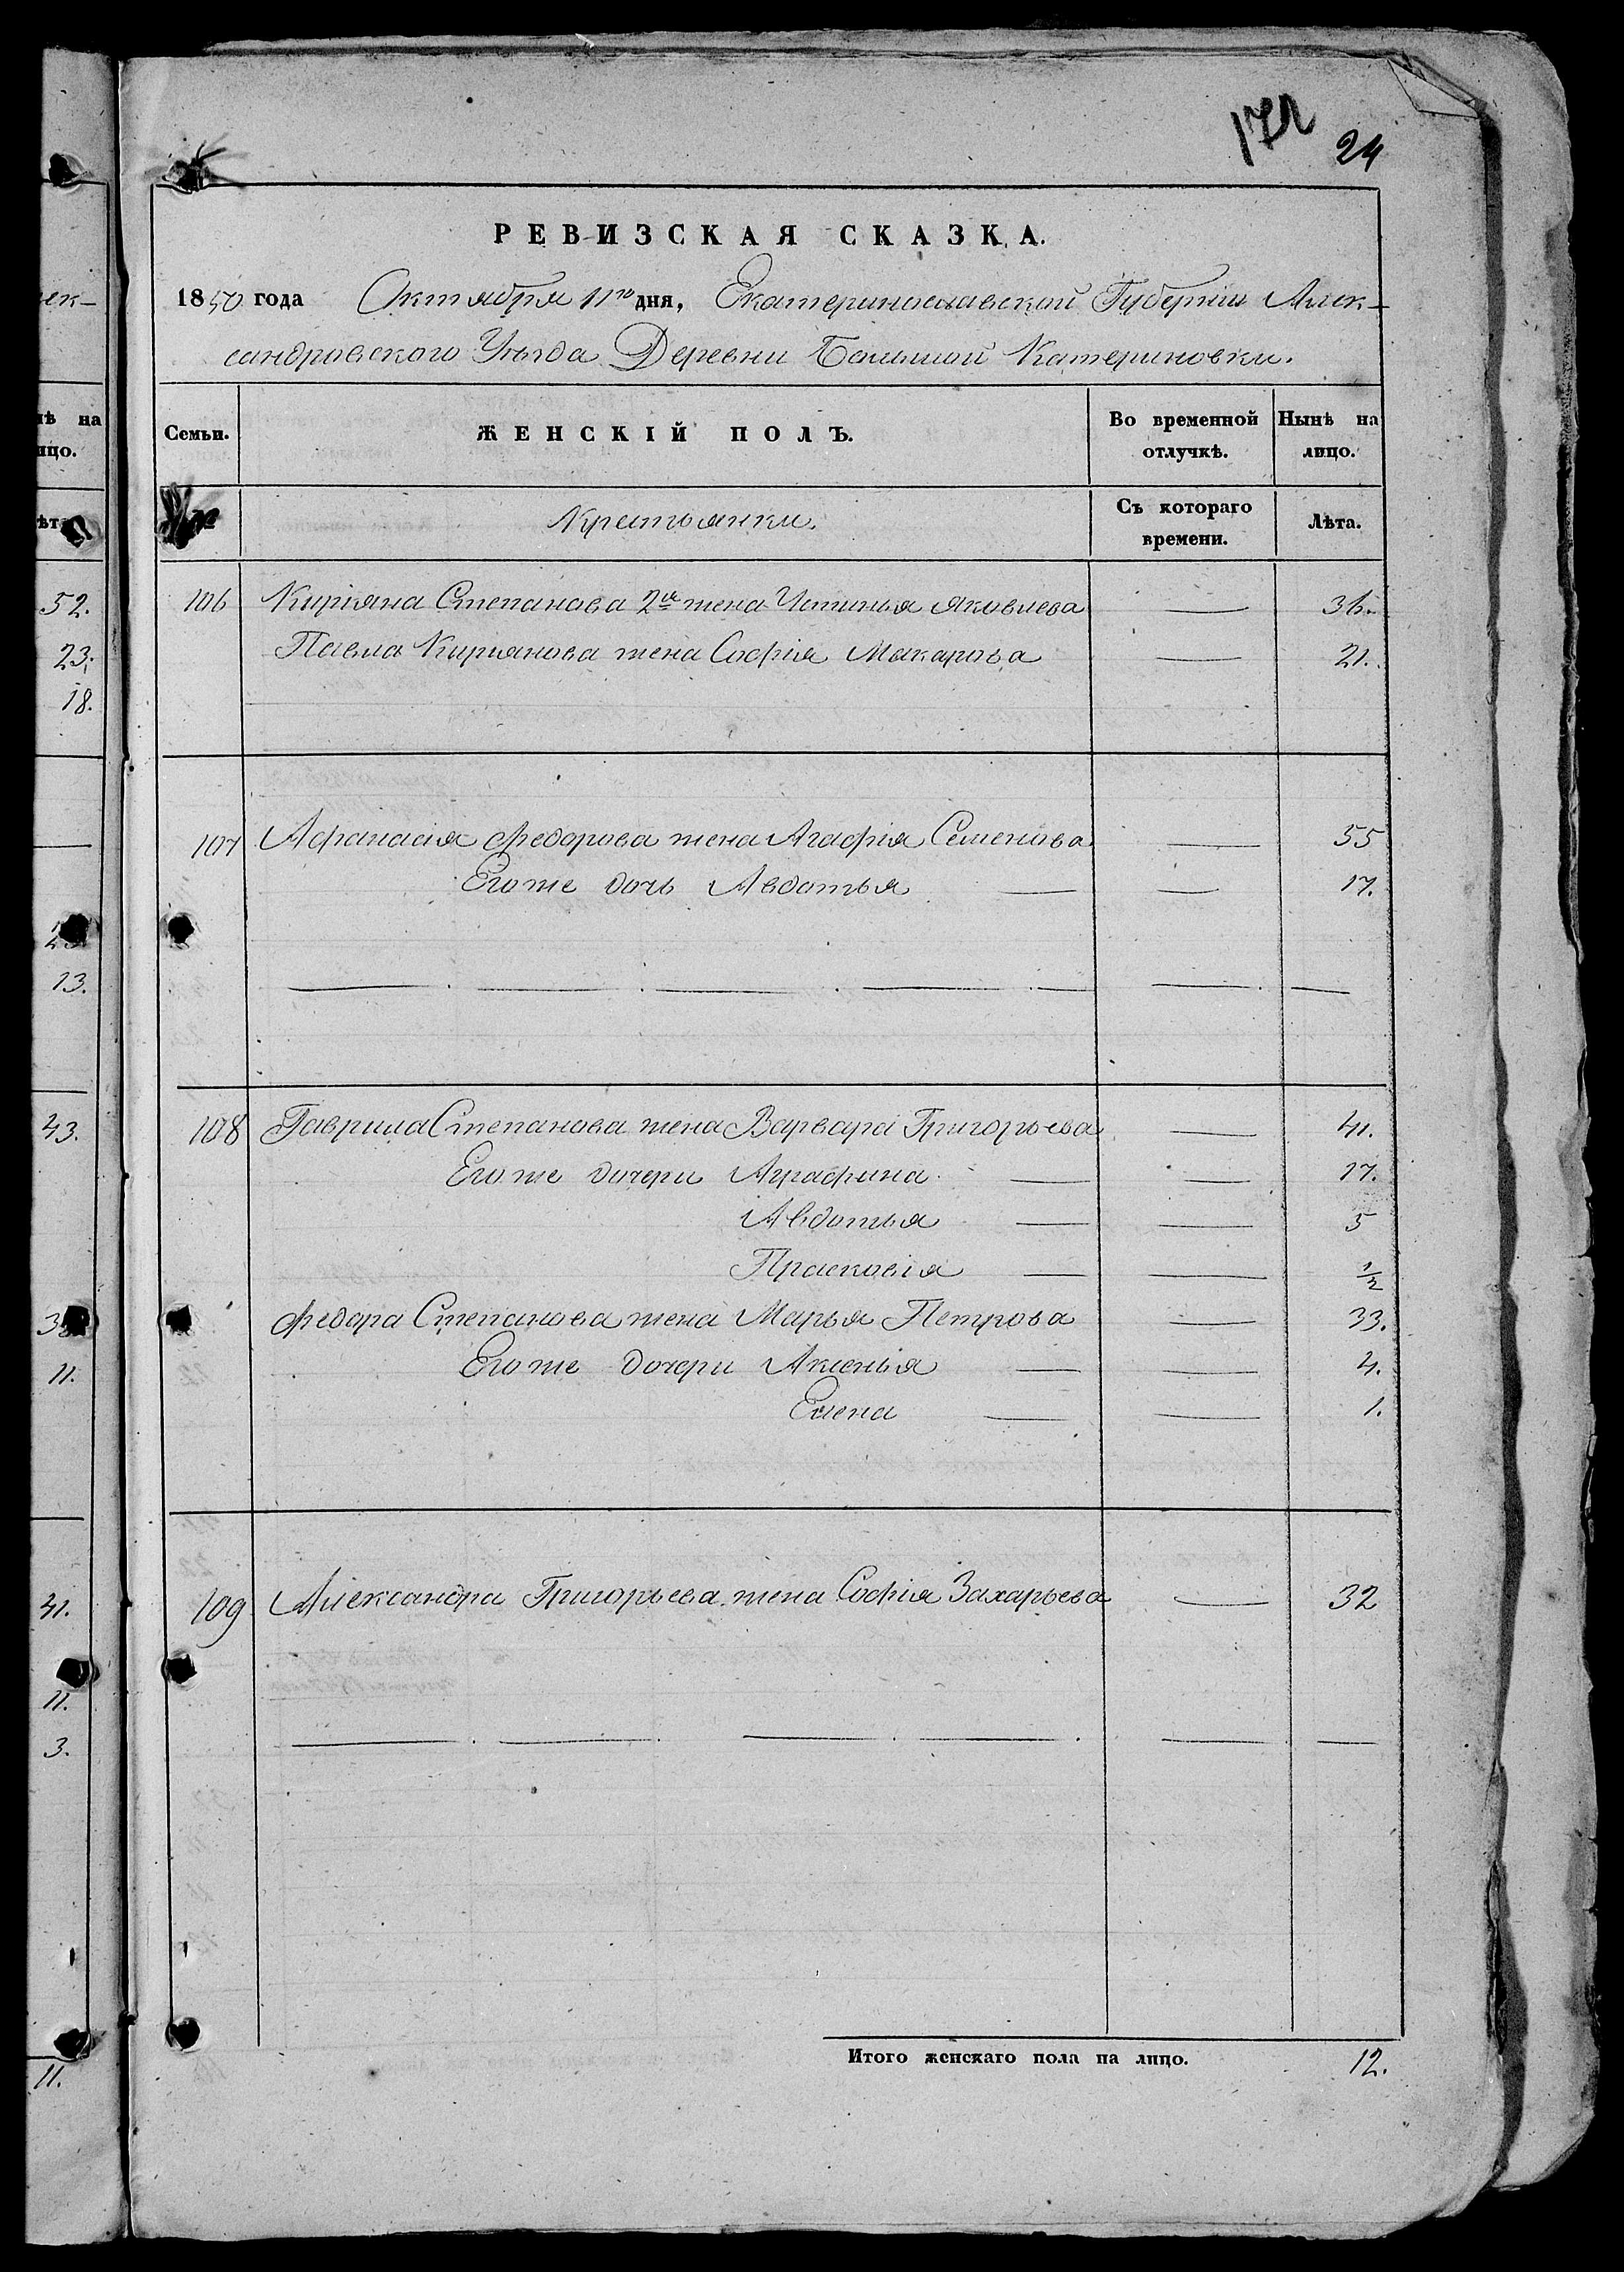 172
24
РЕВИЗСКАЯ СКАЗКА.
1850 года Октября 11го дня, Екатеринославской Губерніи Алек-
сандровского Уѣзда Деревни Большой Катериновки.
Семьи. ЖЕНСКІЙ ПОЛЪ. Во временной отлучкѣ. Нынѣ на лицо.
№ Крестьянки. Съ котораго времени. Лѣта.
106 Кирiяна Степанова 2я жена Устинья Яковлева — 36.
Павла Кирiянова жена Софія Макарова — 21.
107 Афанасія Федорова жена Агафія Семенова — 55
Его же дочь Авдотья — — 17.
108 Гаврила Степанова жена Варвара Григорьева — 41.
Его же дочери Аграфина — — 17.
Авдотья — — 5
Прасковія — — 1/2
Федора Степанова жена Марья Петрова — 33.
Его же дочери Аксенья — — 4.
Елена — — 1.
109 Александра Григорьева жена Софія Захарьева — 32
Итого женскаго пола на лицо. 12.
ек-
нѣ на
ицо.
ѣта
52.
23.
18.
13.
43.
11.
41.
11.
3.
11.